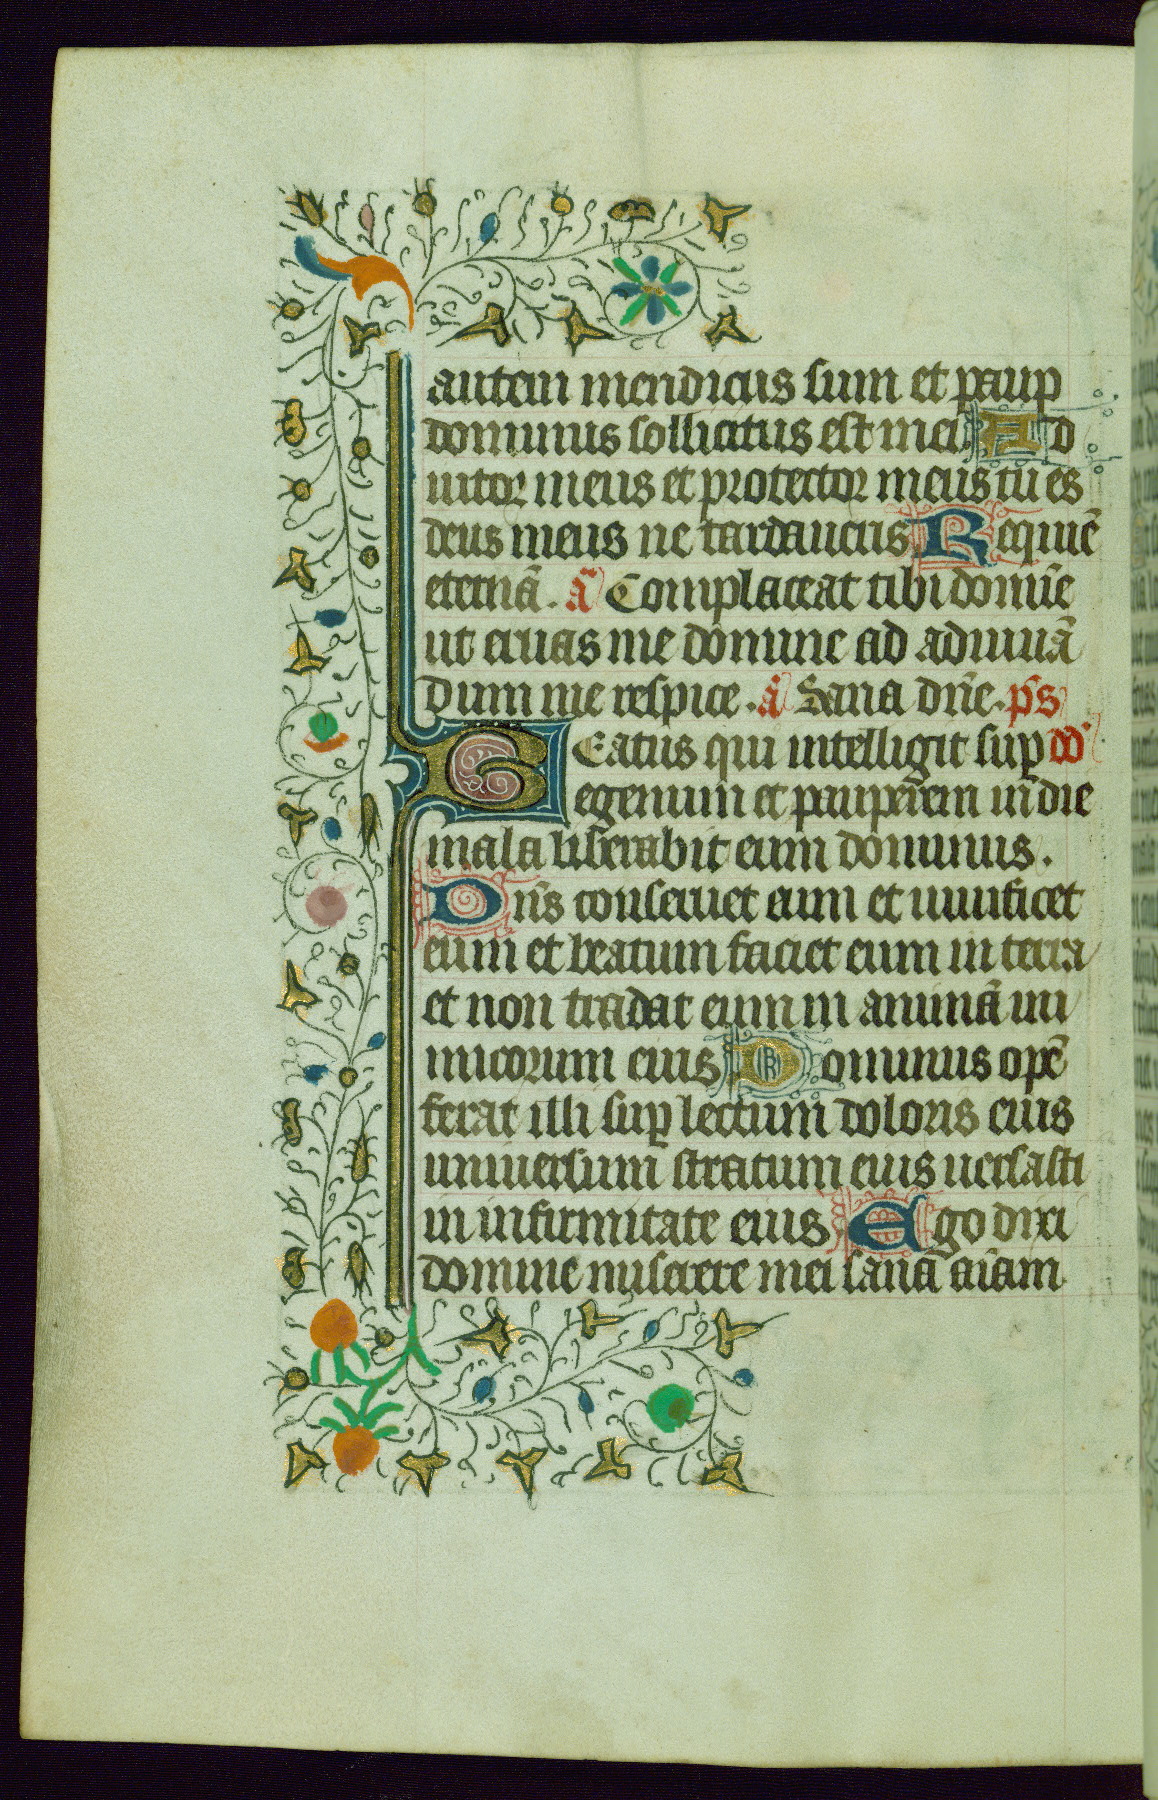 autem mendicus sum et paup
dominus sollicitus est mei Ad
iutor meus et protector meus tu es
deus meus ne tardaueris Requiē
eternā. a᷉ Complaceat tibi domīe
ut eruas me domine ad adiuuā
dum me respice. a᷉ Sana dn̄e. ps
Eatus qui intelligit sup dd͛
egenum et pauperem in die
mala liberabit eum dominus.
Dn̄s conseruet eum et uiuificet
eum et beatum faciet eum in terra
et non tradat eum in animā ini
micorum eius Dominus opē
ferat illi sup lectum doloris eius
uniuersum stratum eius uersasti
in infirmitate eius Ego dixi
domine miserere mei sana aīam